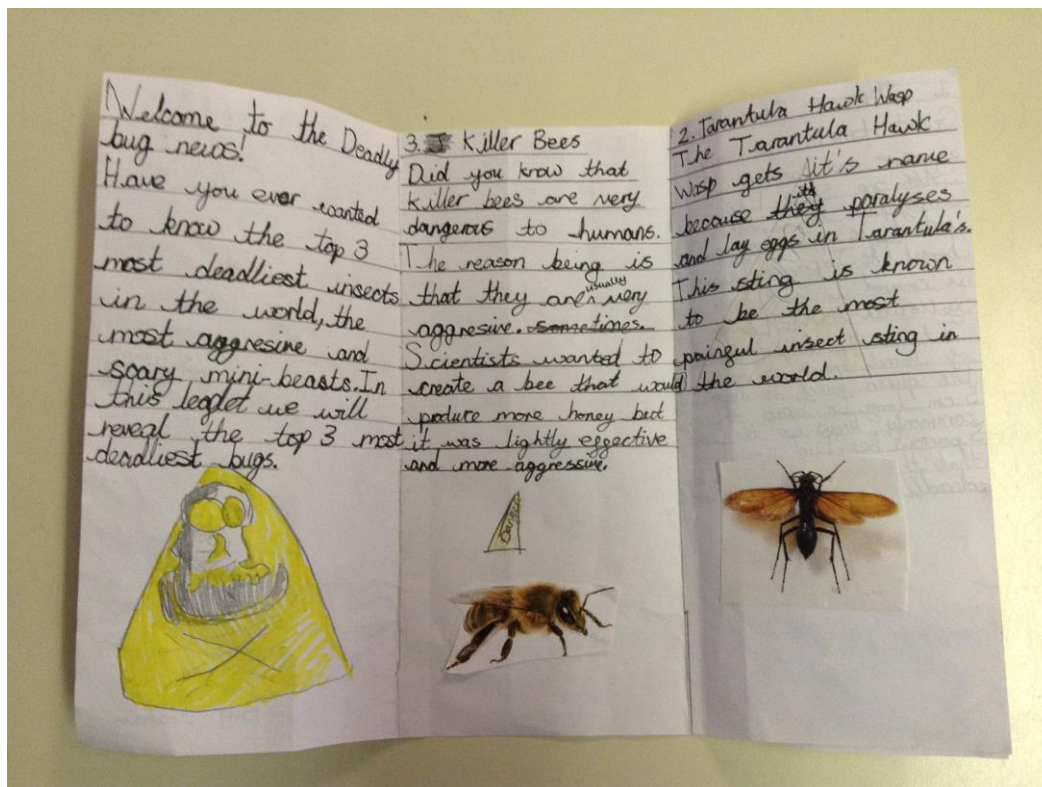 Welcome to the Deadly
bug news!
Have you ever wanted
to know the top 3
most deadliest insects
in the world, the
most aggresive and
scary mini-beasts. In
this leaflet we will
reveal the top 3 most
deadliest bugs.
3. Killer Bees
Did you know that
killer bees are very
dangerous to humans.
The reason being is
that they are usually very
aggresive. sometimes.
Scientists wanted to
create a bee that would
produce more honey but
it was lightly effective
and more aggressive.
Danger
2. Tarantula Hawk Wasp
The Tarantula Hawk
Wasp gets it's name
because they it paralyses
and lay eggs in Tarantula's.
This sting is known
to be the most
painful insect sting in
the world.